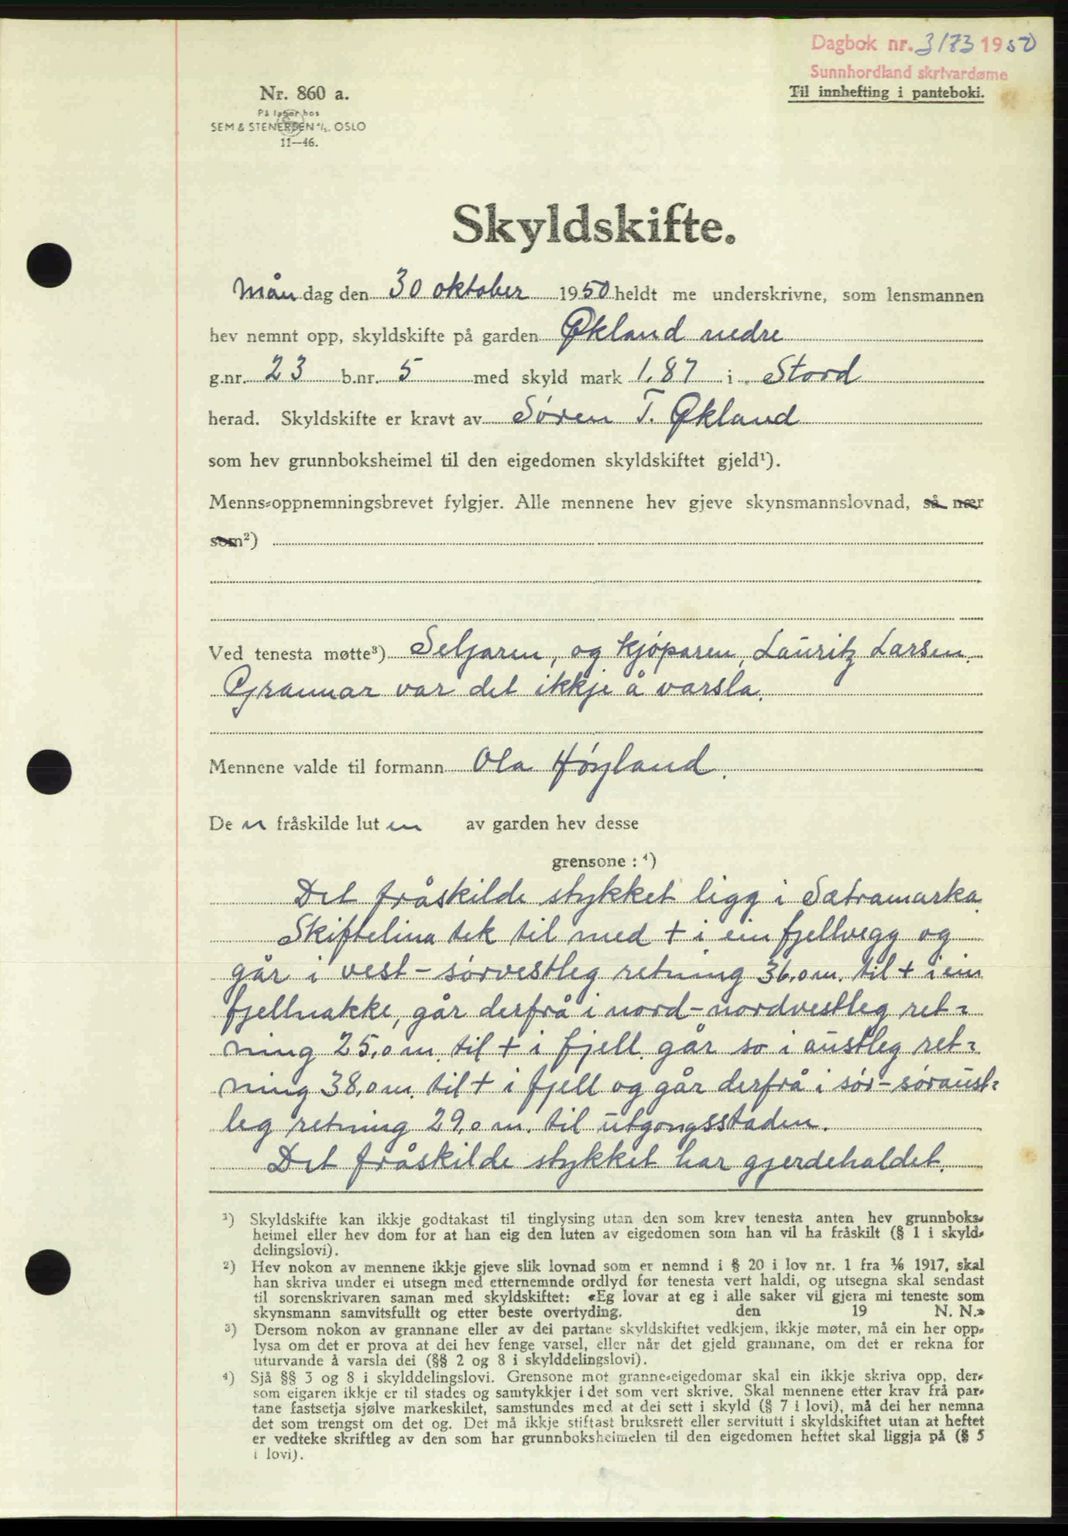 Dagbok nr. 3173 1950
Sunnhordland skrivardøme
Til innhefting i panteboki.
Nr. 860 a.
På lager hos
SEM & STENERSEN A/S. OSLO
11—46.
Skyldskifte.
Mån dag den 30 oktober 1950 heldt me underskrivne, som lensmannen
hev nemnt opp, skyldskifte på garden Økland nedre
g.nr. 23 b.nr. 5 med skyld mark 1.87 i Stord
herad. Skyldskifte er kravt av Søren T. Økland
som hev grunnboksheimel til den eigedomen skyldskiftet gjeld¹).
Menns-oppnemningsbrevet fylgjer. Alle mennene hev gjeve skynsmannslovnad, så nær
som²)
Ved tenesta møtte³) Seljaren, og kjøparen, Lauritz Larsen.
Grannar var det ikkje å varsla.
Mennene valde til formann Ola Høyland.
De n fråskilde lut en av garden hev desse
grensone : ⁴)
Det fråskilde stykket ligg i Sætramarka
Skiftelina tek til med + i ein fjellvegg og
går i vest - sørvestleg retning 36,0 m. til + i ein
fjellnakke, går derfrå i nord-nordvestleg ret-
ning 25,0 m. til + i fjell. går so i austleg ret-
ning 38,0 m. til + i fjell og går derfrå i sør-søraust-
leg retning 29,0 m. til utgongsstaden.
Det fråskilde stykket har gjerdehaldet.
¹) Skyldskifte kan ikkje godtakast til tinglysing utan den som krev tenesta anten hev grunnboks-
heimel eller hev dom for at han eig den luten av eigedomen som han vil ha fråskilt (§ 1 i skyld-
delingslovi).
²) Hev nokon av mennene ikkje gjeve slik lovnad som er nemnd i § 20 i lov nr. 1 fra ⅙ 1917, skal
han skriva under ei utsegn med etternemnde ordlyd før tenesta vert haldi, og utsegna skal sendast
til sorenskrivaren saman med skyldskiftet: «Eg lovar at eg i alle saker vil gjera mi teneste som
skynsmann samvitsfullt og etter beste overtyding. den 19 N. N.»
³) Dersom nokon av grannane eller av dei partane skyldskiftet vedkjem, ikkje møter, må ein her opp-
lysa om det er prova at dei hev fenge varsel, eller når det gjeld grannane, om det er rekna for
uturvande å varsla dei (§§ 2 og 8 i skylddelingslovi).
⁴) Sjå §§ 3 og 8 i skylddelingslovi. Grensone mot granne-eigedomar skal ein ikkje skriva opp, der-
som eigaren ikkje er til stades og samtykkjer i det som vert skrive. Skal mennene etter krav frå par-
tane fastsetja sjølve markeskilet, samstundes med at dei sett i skyld (§ 7 i lovi), må dei her nemna
det som trengst om det og. Det må ikkje stiftast bruksrett eller servitutt i skyldskiftet utan at heftet
er vedteke skriftleg av den som har grunnboksheimelen til den eigedomen heftet skal liggja på (§ 5
i lovi).